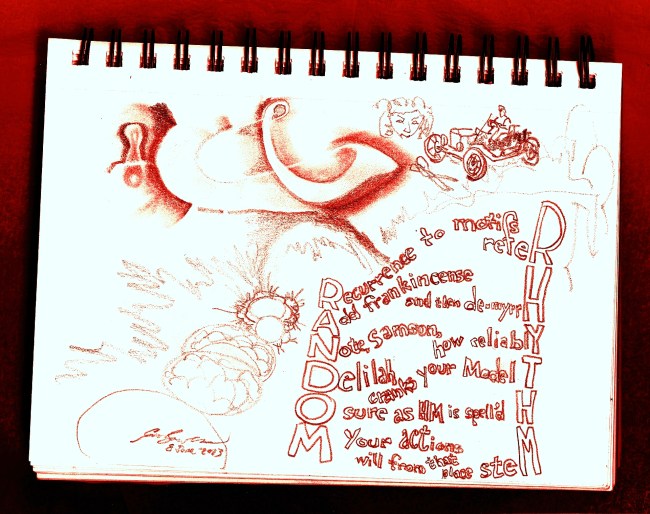 Recurrence to motifs refeR
Add frankincense and then de-myrrH
Note, Samson, how reliablY
Delilah cranks your Model T
O sure as HM is spell'd H
M Your actions will from that place steM
8 June 2013